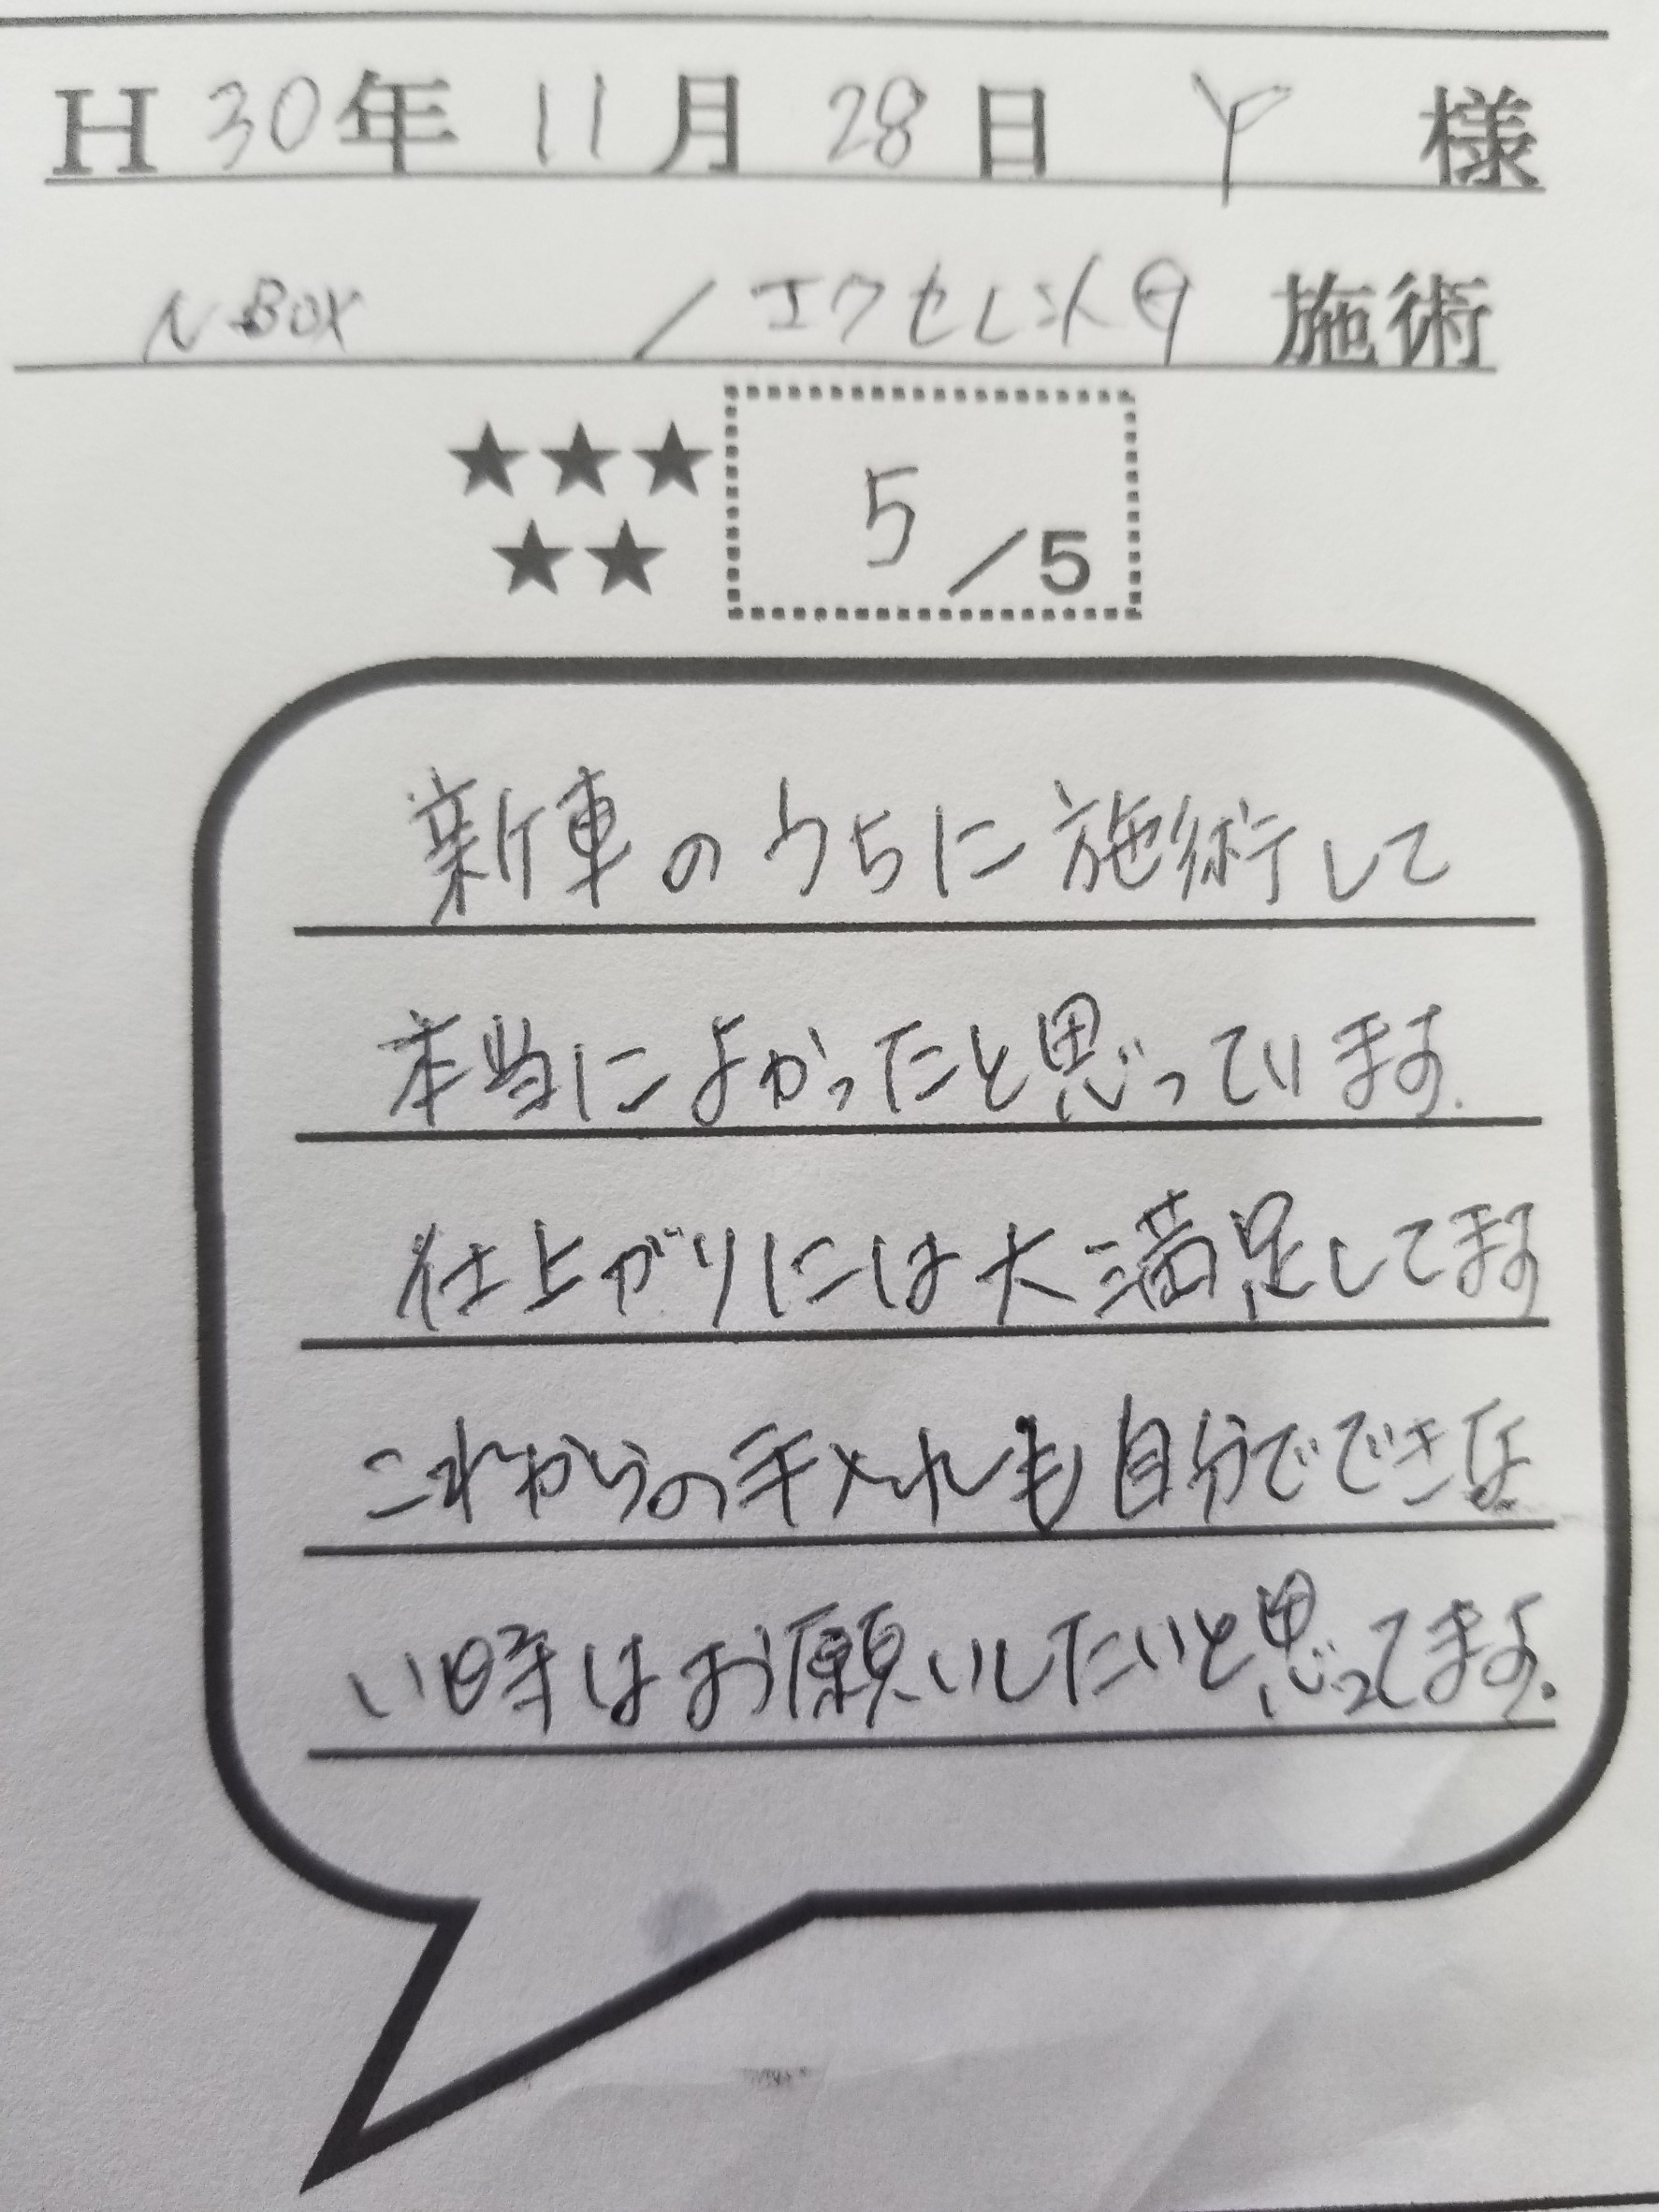 H 30年 11月 28日 Y 様
N BOX / エクセレント 施術
★★★
★★
5/5
新車のうちに施術して
本当によかったと思っています.
仕上がりには大満足してます
これからの手入れも自分でできな
い時はお願いしたいと思ってます.